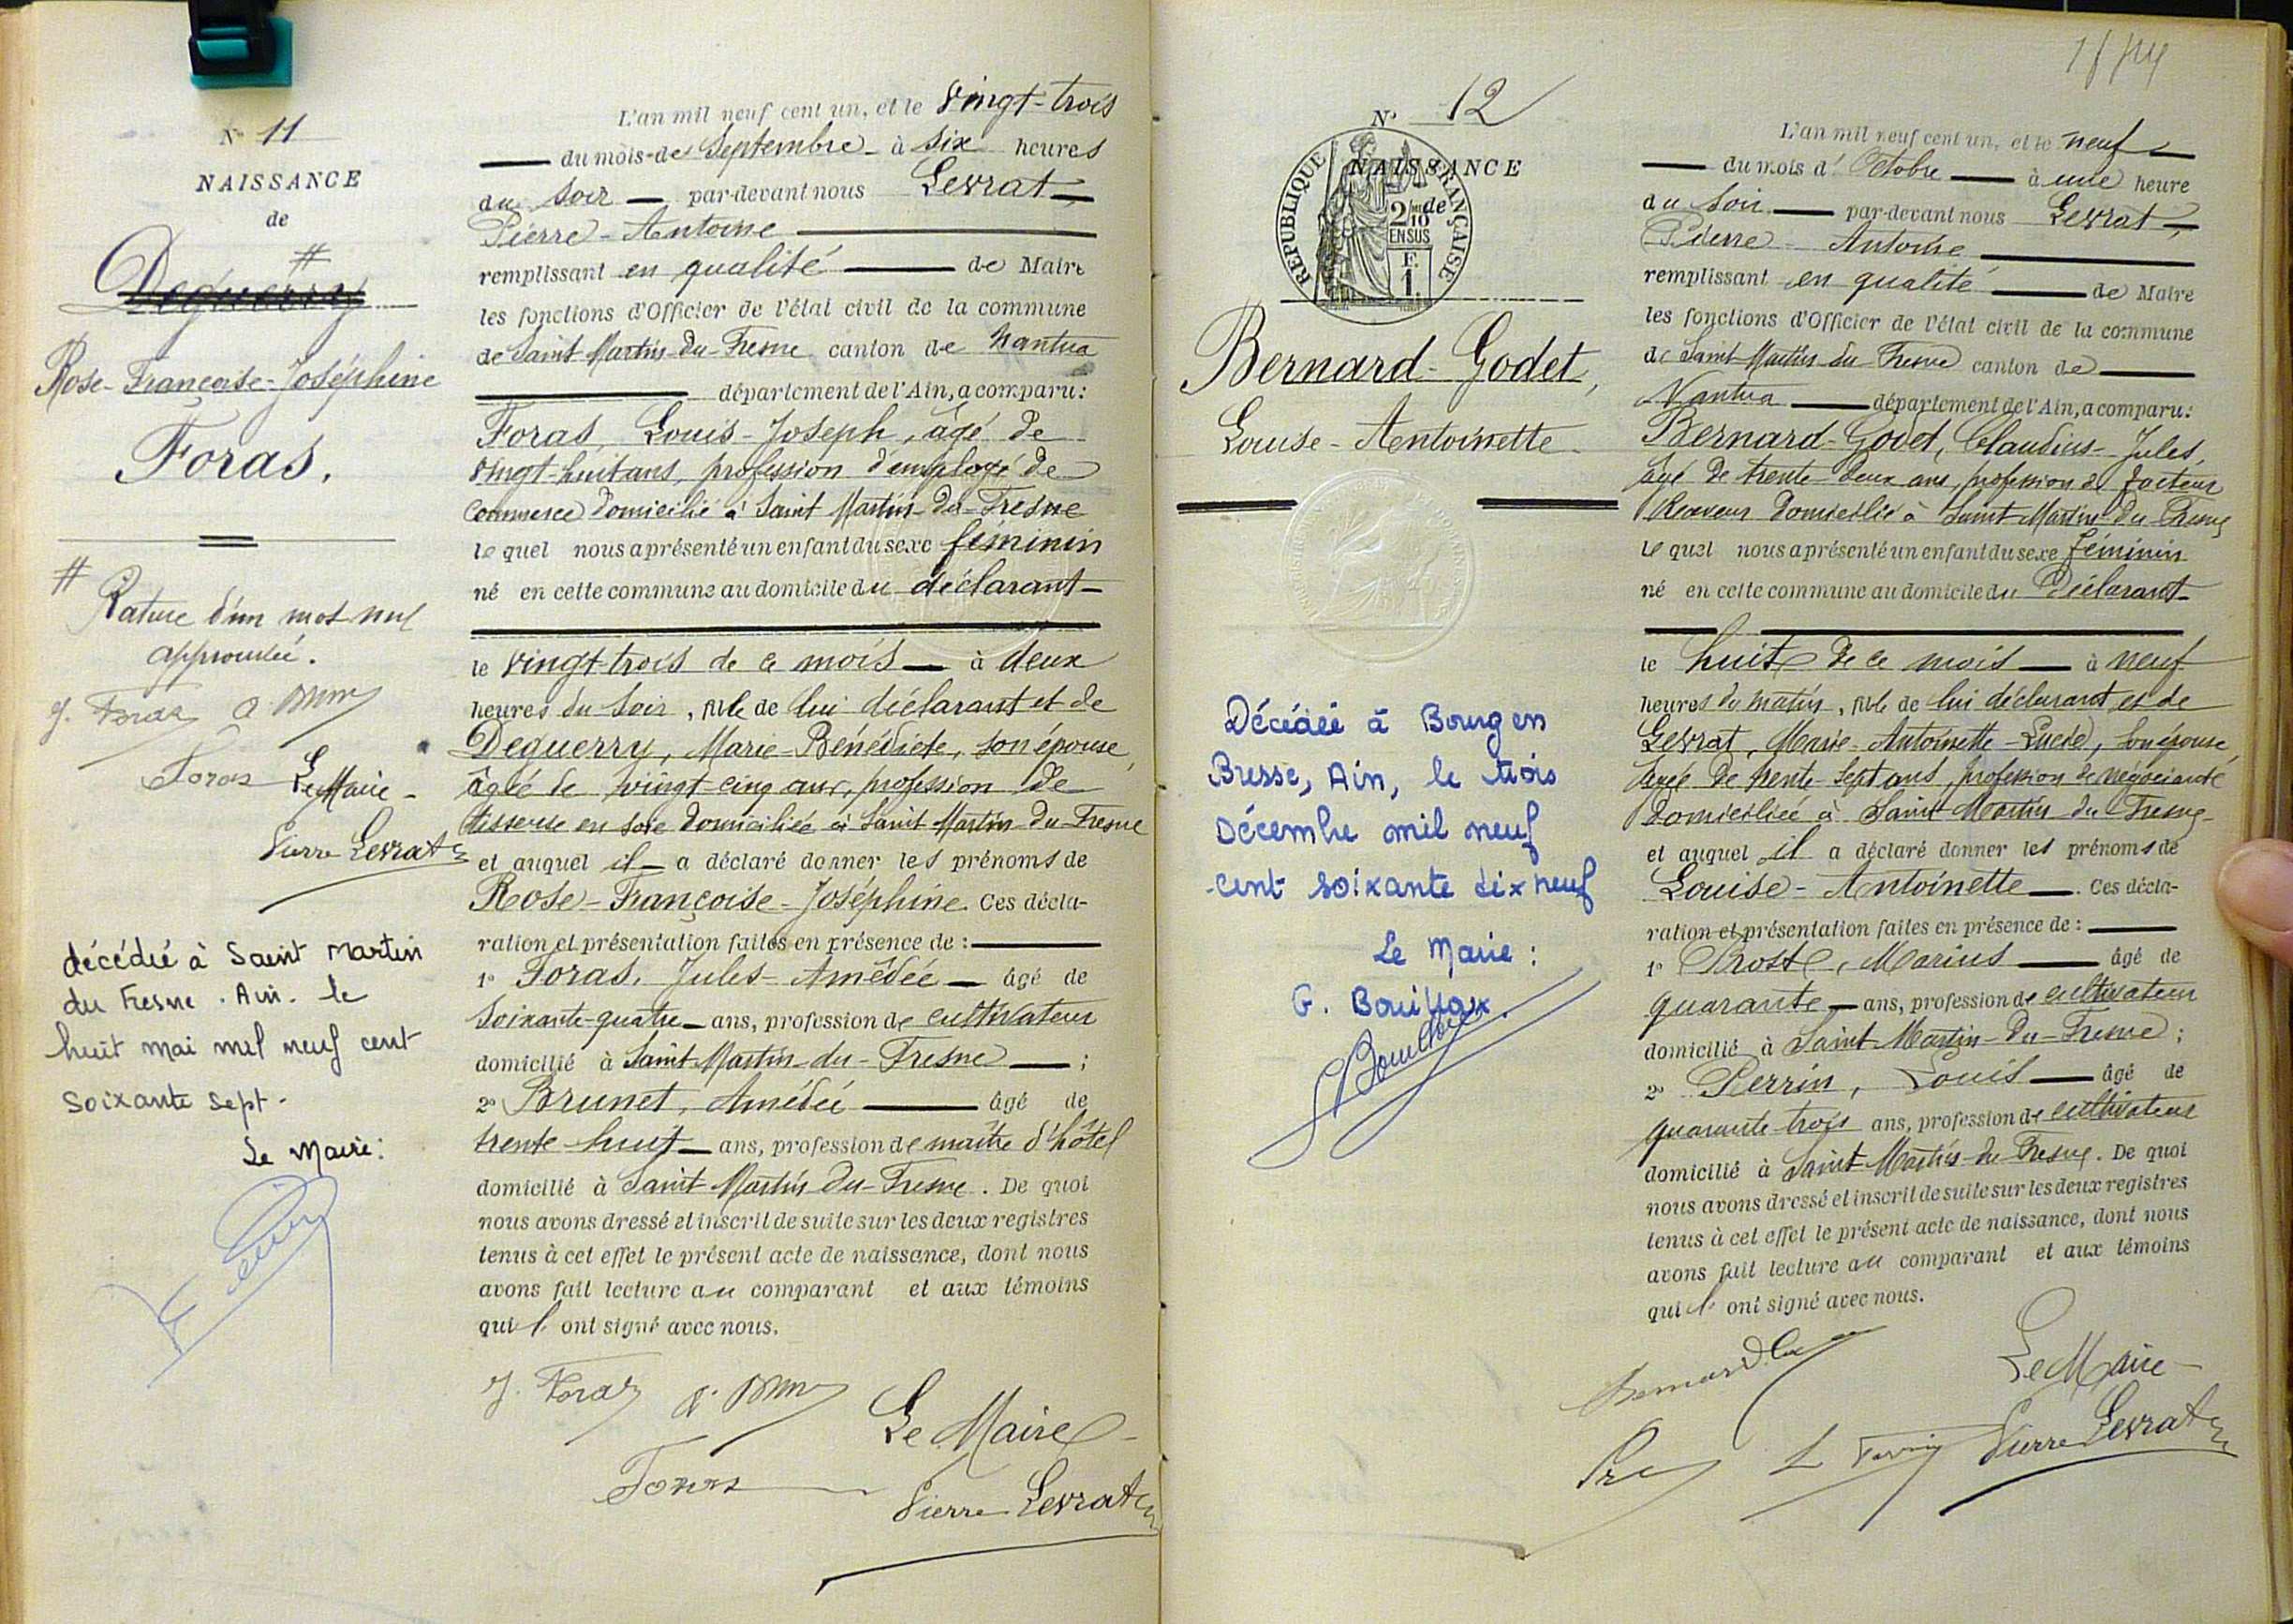 N° 11
NAISSANCE
de
#
Deguerry
Rose-Françoise-Joséphine
Foras.
#
Rature d'un mot nul
approuvée.
J. Foras
Foras Le Maire
Pierre Levrat
décédée à Saint Martin
du Fresne . Ain . le
huit mai mil neuf cent
soixante sept .
Le Maire :
L'an mil neuf cent un, et le vingt-trois
du mois de Septembre à six heures
du soir par-devant nous Levrat,
Pierre-Antoine
remplissant en qualité de Maire
les fonctions d'Officier de l'état civil de la commune
de Saint Martin-du-Fresne canton de Nantua
département de l'Ain, a comparu :
Foras, Louis-Joseph, âgé de
vingt-huit ans, profession d'employé de
commerce domicilié à Saint Martin-du-Fresne
lequel nous a présenté un enfant du sexe féminin
né en cette commune au domicile du déclarant
le vingt-trois de ce mois à deux
heures du soir, fille de lui déclarant et de
Deguerry, Marie-Bénédicte, son épouse,
âgée de vingt-cinq ans, profession de
tisseuse en soie domiciliée à Saint Martin-du-Fresne
et auquel il a déclaré donner les prénoms de
Rose-Françoise-Joséphine. Ces décla-
ration et présentation faites en présence de :
1° Foras, Jules-Amédée âgé de
soixante-quatre ans, profession de cultivateur
domicilié à Saint-Martin-du-Fresne ;
2° Brunet, Amédée âgé de
trente-huit ans, profession de maître d'hôtel
domicilié à Saint Martin-du-Fresne. De quoi
nous avons dressé et inscrit de suite sur les deux registres
tenus à cet effet le présent acte de naissance, dont nous
avons fait lecture au comparant et aux témoins
qui l' ont signé avec nous.
J. Foras
Le Maire
Foras
Pierre Levrat
N° 12
NAISSANCE
de
RÉPUBLIQUE FRANÇAISE
2/10 EN SUS
F.
1.
Bernard-Godet,
Louise-Antoinette
Décédée à Bourg en
Bresse, Ain, le trois
Décembre mil neuf
cent soixante dix neuf
Le Maire :
G. Bouilloux.
L'an mil neuf cent un, et le neuf
du mois d'Octobre à une heure
du soir par-devant nous Levrat,
Pierre-Antoine
remplissant en qualité de Maire
les fonctions d'Officier de l'état civil de la commune
de Saint-Martin-du-Fresne canton de
Nantua département de l'Ain, a comparu :
Bernard-Godet, Claudius-Jules,
âgé de trente-deux ans, profession de facteur
Receveur domicilié à Saint-Martin-du-Fresne
lequel nous a présenté un enfant du sexe féminin
né en cette commune au domicile du déclarant
le huit de ce mois à neuf
heures du matin, fille de lui déclarant et de
Levrat, Marie-Antoinette-Lucie, son épouse,
âgée de trente-sept ans, profession de négociante
domiciliée à Saint Martin du Fresne
et auquel il a déclaré donner les prénoms de
Louise-Antoinette. Ces décla-
ration et présentation faites en présence de :
1° Prost, Marius âgé de
quarante ans, profession de cultivateur
domicilié à Saint-Martin-du-Fresne ;
2° Perrin, Louis âgé de
quarante-trois ans, profession de cultivateur
domicilié à Saint Martin-du-Fresne. De quoi
nous avons dressé et inscrit de suite sur les deux registres
tenus à cet effet le présent acte de naissance, dont nous
avons fait lecture au comparant et aux témoins
qui l' ont signé avec nous.
Le Maire
L Perrin Pierre Levrat